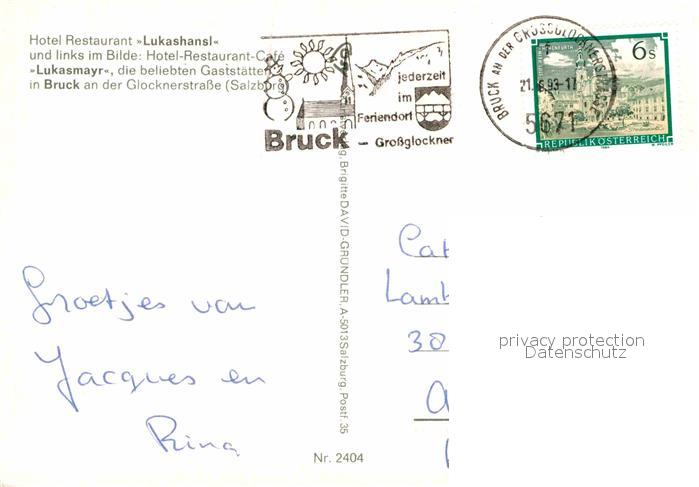 Hotel Restaurant »Lukashansl«
und links im Bilde: Hotel-Restaurant-Café
»Lukasmayr«, die beliebten Gaststätten
in Bruck an der Glocknerstraße (Salzburg)
jederzeit
im
Feriendorf
Bruck - Großglockner
BRUCK AN DER GROSSGLOCKNERSTRASSE
21. 93-17
5671
6s
REPUBLIK ÖSTERREICH
Brigitte DAVID-GRÜNDLER, A-5013 Salzburg, Postf. 35
Groetjes van
Jacques en
Rina
Cat
Lamb
30
privacy protection
Datenschutz
Nr. 2404